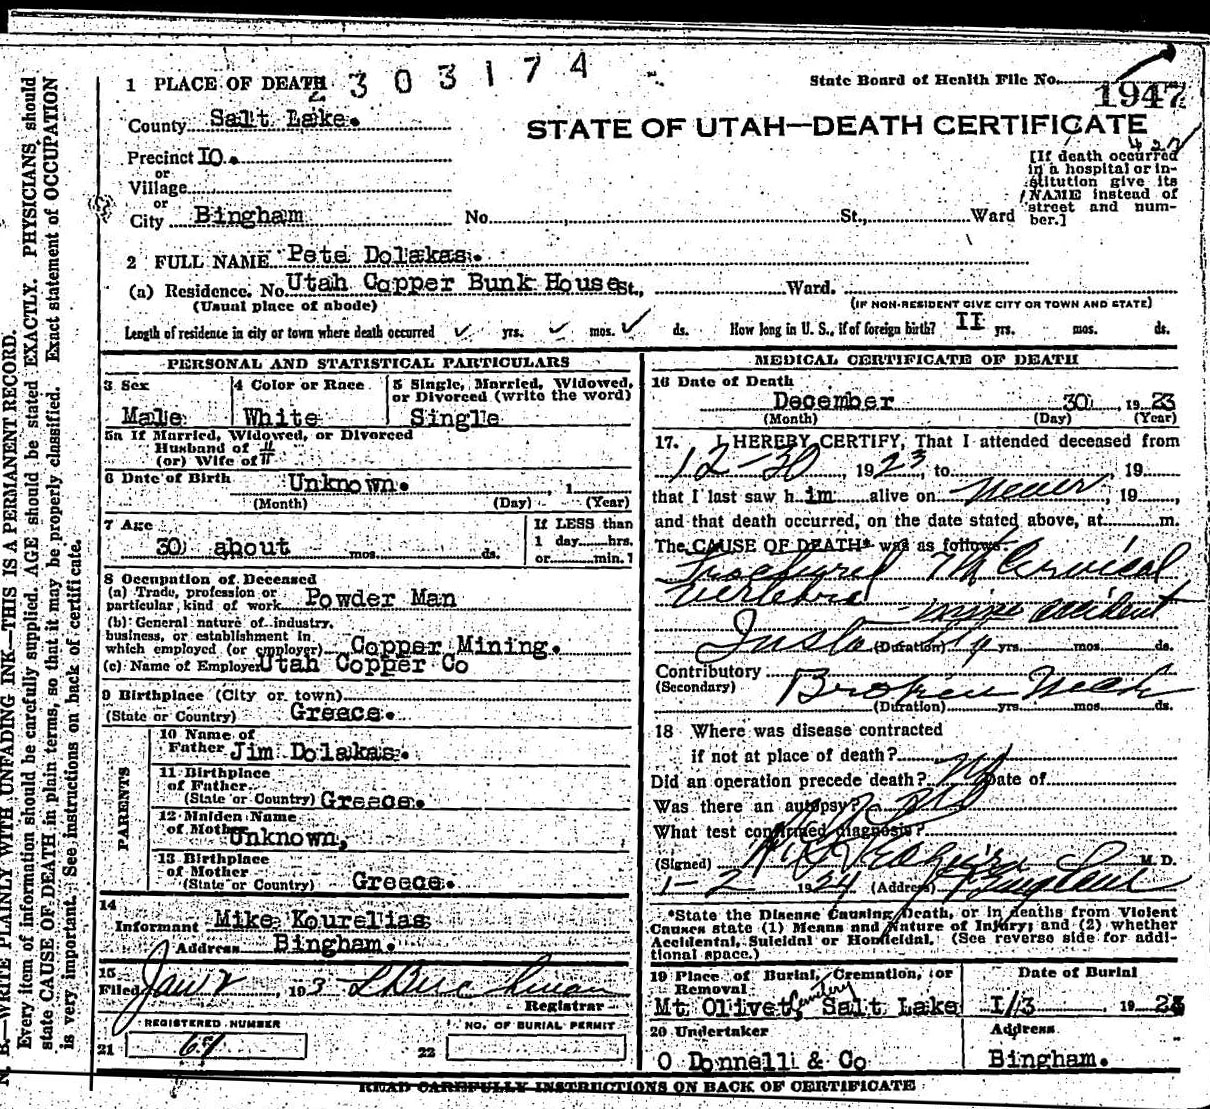 1 PLACE OF DEATH 2 303174
State Board of Health File No. 1947
County Salt Lake.
STATE OF UTAH—DEATH CERTIFICATE
Precinct 10.
or
Village
or
City Bingham No. St., Ward
[If death occurred
in a hospital or in-
stitution give its
NAME instead of
street and num-
ber.]
2 FULL NAME Pete Dolakas.
(a) Residence. No. Utah Copper Bunk House St., Ward.
(Usual place of abode) (IF NON-RESIDENT GIVE CITY OR TOWN AND STATE)
Length of residence in city or town where death occurred yrs. mos. ds. How long in U. S., if of foreign birth? II yrs. mos. ds.
PERSONAL AND STATISTICAL PARTICULARS
3 Sex
Male
4 Color or Race
White
5 Single, Married, Widowed,
or Divorced (write the word)
Single
5a If Married, Widowed, or Divorced
Husband of
(or) Wife of
6 Date of Birth Unknown. , 1
(Month) (Day) (Year)
7 Age
30 about mos. ds.
If LESS than
1 day hrs.
or min.
8 Occupation of Deceased
(a) Trade, profession or
particular, kind of work Powder Man
(b) General nature of industry,
business, or establishment in
which employed (or employer) Copper Mining.
(c) Name of Employer Utah Copper Co
9 Birthplace (City or town)
(State or Country) Greece.
PARENTS
10 Name of
Father Jim Dolakas.
11 Birthplace
of Father
(State or Country) Greece.
12 Maiden Name
of Mother Unknown,
13 Birthplace
of Mother
(State or Country) Greece.
14
Informant Mike Kourelias
Address Bingham.
15
Filed Jan 2, 193
Registrar
REGISTERED NUMBER
21 61
NO. OF BURIAL PERMIT
22
MEDICAL CERTIFICATE OF DEATH
16 Date of Death
December 30 1923
(Month) (Day) (Year)
17. I HEREBY CERTIFY, That I attended deceased from
12-30, 1923, to , 19
that I last saw him alive on never, 19 ,
and that death occurred, on the date stated above, at m.
The CAUSE OF DEATH* was as follows:
Fractured 7th Cervical
Vertebra - mine accident
Instantly (Duration) yrs. mos. ds.
Contributory
(Secondary) Broken Neck
(Duration) yrs. mos. ds.
18 Where was disease contracted
if not at place of death?
Did an operation precede death? No Date of
Was there an autopsy? No
What test confirmed diagnosis?
(Signed) M. D.
1-2 1924 (Address) Bingham
*State the Disease Causing Death, or in deaths from Violent
Causes state (1) Means and Nature of Injury; and (2) whether
Accidental, Suicidal or Homicidal. (See reverse side for addi-
tional space.)
19 Place of Burial, Cremation, or
Removal
Mt Olivet Cemetery Salt Lake
Date of Burial
I/3 19
20 Undertaker
O Donnell & Co
Address
Bingham.
READ CAREFULLY INSTRUCTIONS ON BACK OF CERTIFICATE
N. B.—WRITE PLAINLY WITH UNFADING INK—THIS IS A PERMANENT RECORD.
Every item of information should be carefully supplied. AGE should be stated EXACTLY. PHYSICIANS should
state CAUSE OF DEATH in plain terms, so that it may be properly classified. Exact statement of OCCUPATION
is very important. See instructions on back of certificate.